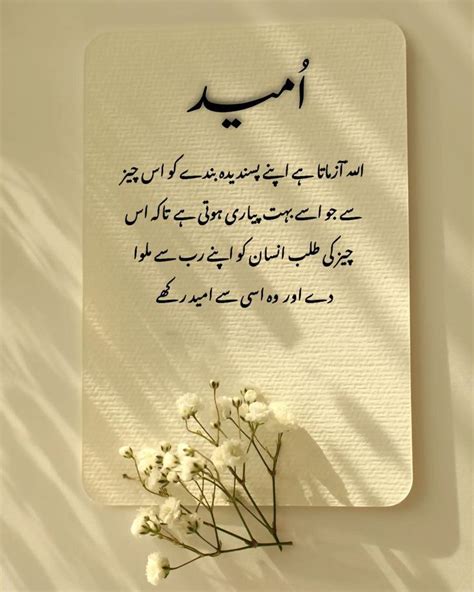 اُمید
اللہ آزماتا ہے اپنے پسندیدہ بندے کو اس چیز
سے جو اسے بہت پیاری ہوتی ہے تاکہ اس
چیز کی طلب انسان کو اپنے رب سے ملوا
دے اور وہ اسی سے امید رکھے